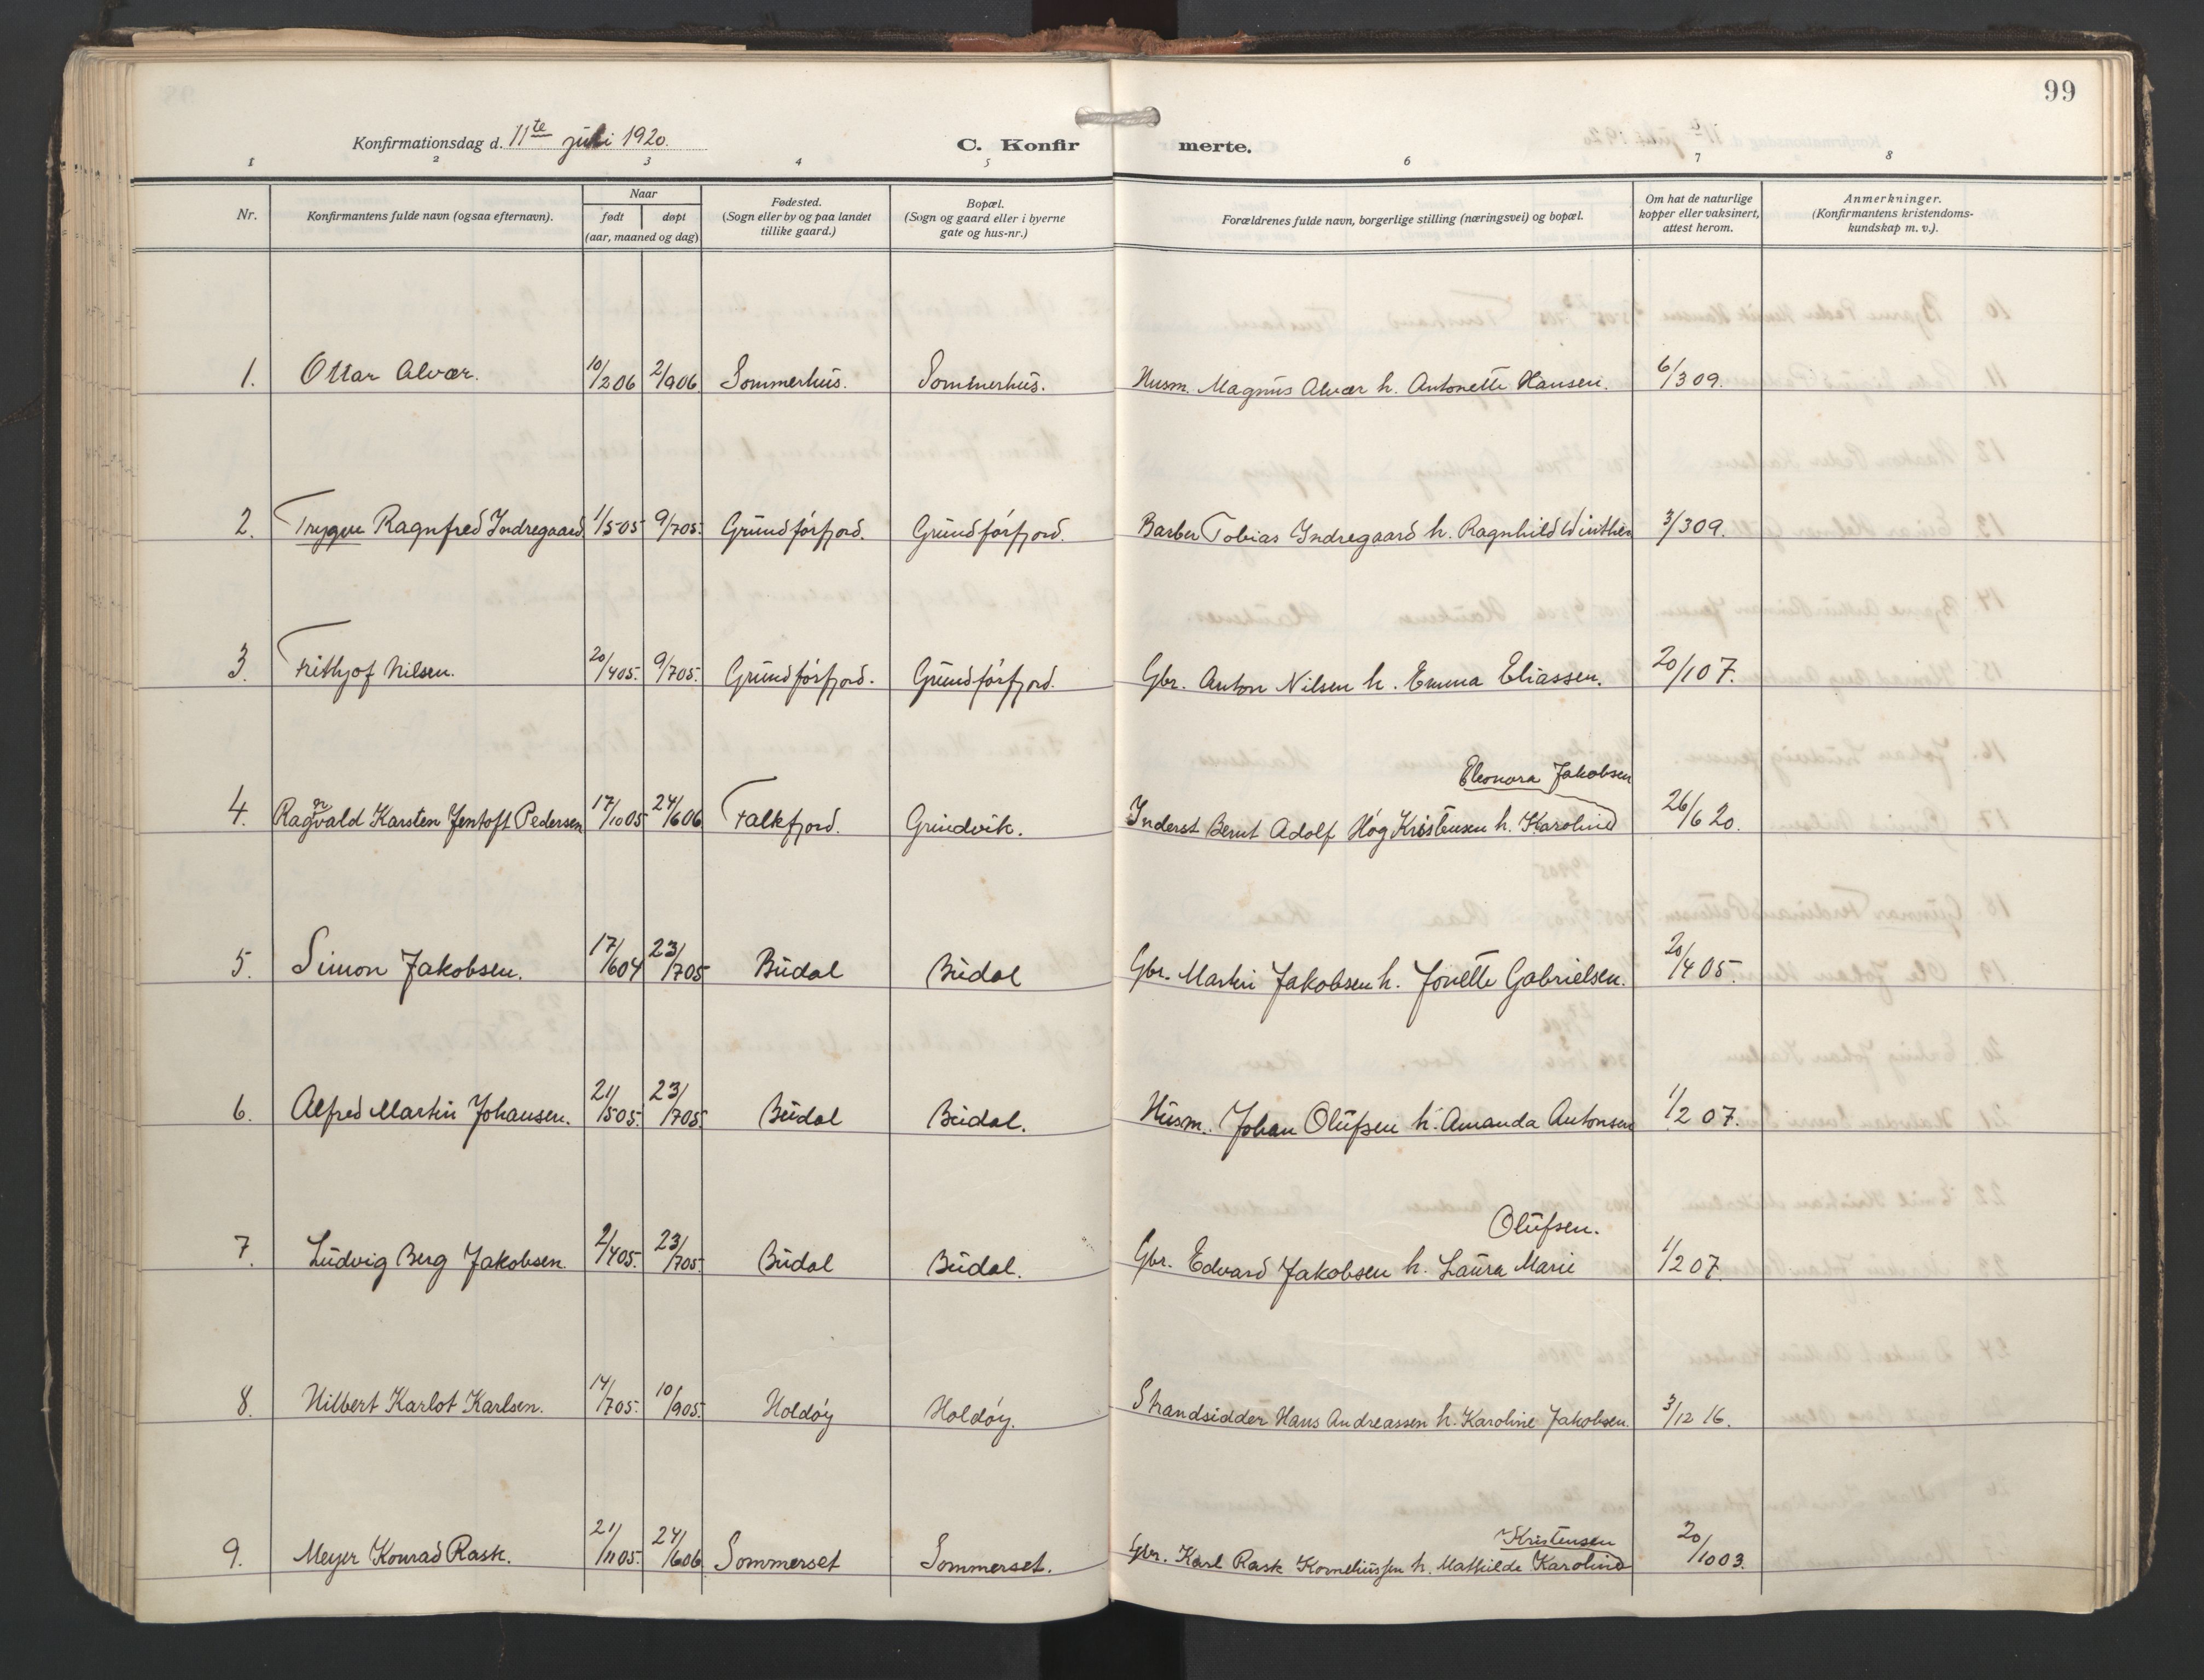 99
Konfirmationsdag d. 11te juli 1920.
C. Konfirmerte.
1 2 3 4 5 6 7 8
Nr. Konfirmantens fulde navn (ogsaa efternavn). Naar født døpt (aar, maaned og dag) Fødested. (Sogn eller by og paa landet tillike gaard.) Bopæl. (Sogn og gaard eller i byerne gate og hus-nr.) Forældrenes fulde navn, borgerlige stilling (næringsvei) og bopæl. Om hat de naturlige kopper eller vaksinert, attest herom. Anmerkninger. (Konfirmantens kristendomskundskap m. v.).
1. Ottar Alvær. 10/2 06 2/9 06 Sommerhus. Sommerhus. Husm. Magnus Alvær h. Antonette Hansen. 6/3 09.
2. Trygve Ragnfred Indregaard 1/5 05 9/7 05. Grundførfjord. Grundførfjord. Barber Tobias Indregaard h. Ragnhild Winther 3/3 09.
3. Frithjof Nilsen. 20/4 05. 9/7 05. Grundførfjord. Grundførfjord. Gbr. Anton Nilsen h. Emma Eliassen. 20/1 07.
4. Ragnvald Karsten Jentoft Pedersen 17/10 05 24/6 06 Falkfjord. Grindvik. Inderst Bernt Adolf Høg Kristensen h. Karoline Eleonora Jakobsen 26/6 20.
5. Simon Jakobsen. 17/6 04 23/7 05 Budal Budal Gbr. Martin Jakobsen h. Jonette Gabrielsen. 20/4 05.
6. Alfred Martin Johansen. 21/5 05. 23/7 05. Budal Budal. Husm. Johan Olufsen h. Amanda Antonsen 1/2 07.
7. Ludvig Berg Jakobsen 2/4 05. 23/7 05. Budal Budal. Gbr. Edvard Jakobsen h. Laura Marie Olufsen. 1/2 07.
8. Hilbert Karlot Karlsen. 14/7 05. 10/9 05. Holdøy Holdøy. Strandsidder Hans Andreassen h. Karoline Jakobsen. 3/12 16.
9. Meyer Konrad Rask. 21/11 05. 24/6 06 Sommerset Sommerset. Gbr. Karl Rask Korneliussen h. Mathilde Karoline Kristensen 20/10 03.